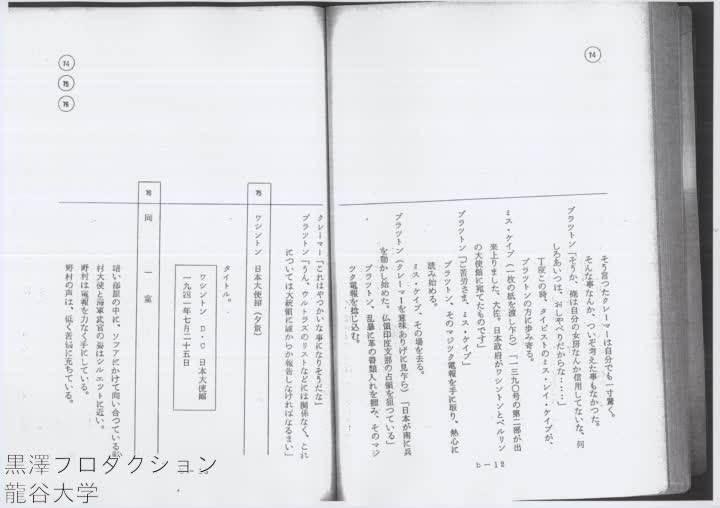 74
そう言つたクレーマーは自分でも一寸驚く。
そんな事なんか、ついぞ考えた事もなかつた。
ブラツトン「そうか、俺は自分の女房なんか信用してないな、何
しろあいつは、おしやべりだからな……」
丁度この時、タイピストのミス・レイ・ケイプが、
ブラツトンの方に歩み寄る。
ミス・ケイブ（一枚の紙を渡し乍ら）「一三九〇号の第二部が出
来上りました、大佐。日本政府がワシントンとベルリン
の大使館に宛てたものです」
ブラツトン「ご苦労さま、ミス・ケイブ」
ブラツトン、そのマジツク電報を手に取り、熱心に
読み始める。
ミス・ケイブ、その場を去る。
ブラツトン（クレーマーを意味ありげに見乍ら）「日本が南に兵
を動かし始めた。仏領印度支那の占領を狙つている」
ブラツトン、乱暴に革の書類入れを掴み、そのマジ
ツク電報を捻じ込む。
b－12
74
75
76
クレーマー「これはやつかいな事になりそうだな」
ブラツトン「うん、ウルトラズのリストなどには関係なく、これ
については大統領に誰からか報告しなければなるまい」
75 ワシントン 日本大使館（夕景）
タイトル。
ワシントン D・C 日本大使館
一九四一年七月二十五日
76 同 一室
暗い部屋の中に、ソフアにかけて向い合つている
村大使と海軍武官の姿はシルエツトに近い。
野村は電報を力なく手にしている。
野村の声は、低く苦悩に充ちている。
黒澤プロダクション
龍谷大学